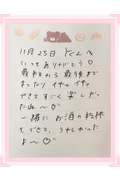 11月25日 Kくんへ
いってありがとう♡
最初から最後まで
まったり イチャイチャ
できてすごく楽しかっ
たね〜♡
一緒に お酒の乾杯
もできて、うれしかった
よ〜♡